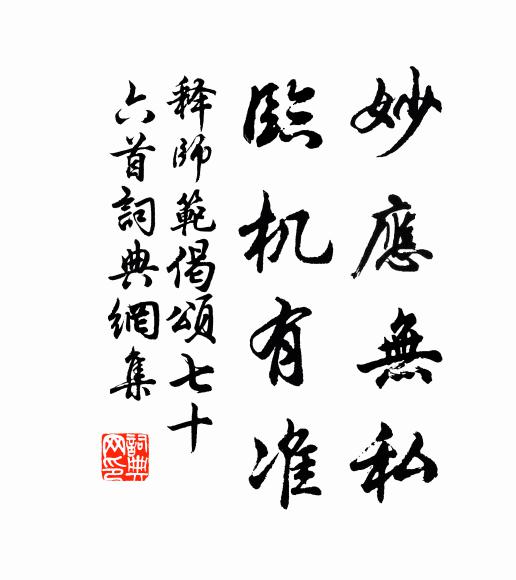 妙應無私
臨机有准
释師範偈頌七十
六首詞典網集
詞典
网印